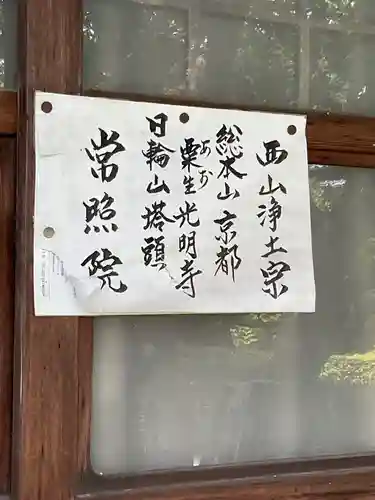 西山浄土宗
総本山京都
あお
粟生光明寺
日輪山塔頭
常照院